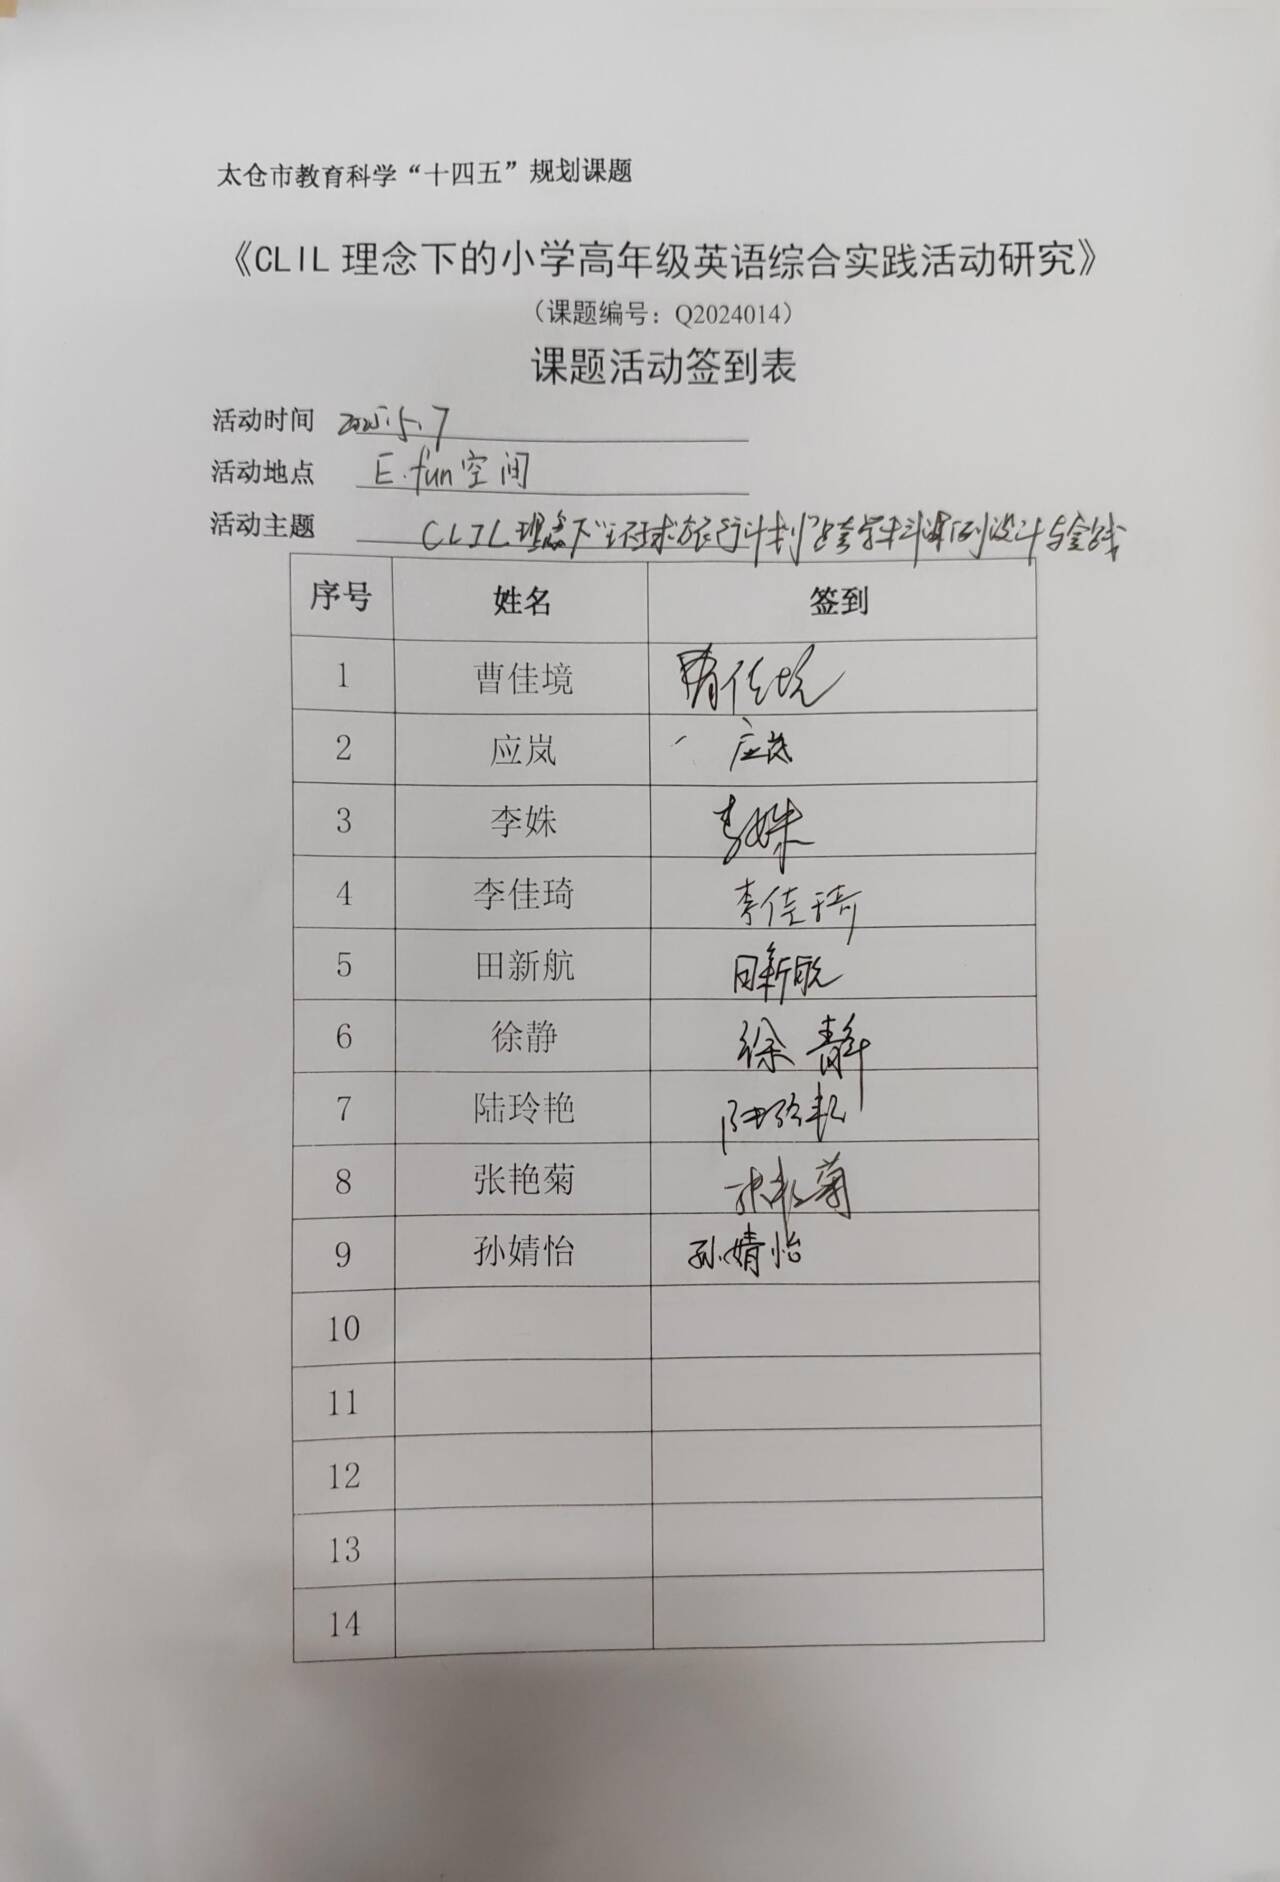 太仓市教育科学“十四五”规划课题
《CLIL 理念下的小学高年级英语综合实践活动研究》
（课题编号：Q2024014）
课题活动签到表
活动时间 2025.5.7
活动地点 E.fun空间
活动主题 CLIL理念下“环球旅行计划”跨学科课例设计与实践
序号 姓名 签到
1 曹佳境 曹佳境
2 应岚 应岚
3 李姝 李姝
4 李佳琦 李佳琦
5 田新航 田新航
6 徐静 徐静
7 陆玲艳 陆玲艳
8 张艳菊 张艳菊
9 孙婧怡 孙婧怡
10
11
12
13
14